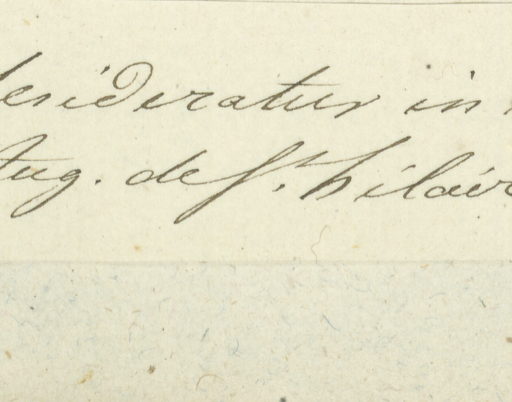 desideratur in
Aug. de St. hilair